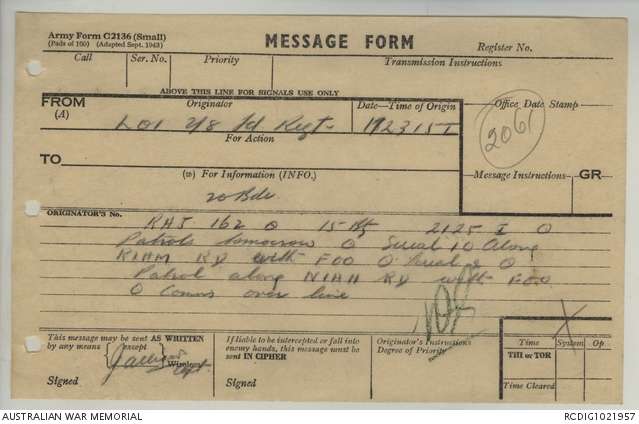 Army Form C2136 (Small)
(Pads of 100) (Adapted Sept. 1943)
MESSAGE FORM
Register No.
Call Ser. No. Priority Transmission Instructions
ABOVE THIS LINE FOR SIGNALS USE ONLY
FROM Originator Date—Time of Origin Office Date Stamp
(A) LO1 2/8 Fd Regt 192315 I
2061
For Action
TO
(W) For Information (INFO.)
Message Instructions GR
20 Bde
ORIGINATOR'S No.
162 O 15 2125 I O
Patrols tomorrow O Serial 1 O Along
RD with FOO O Serial 2 O
Patrol along NIAH RD with FOO
O Comns over line
This message may be sent AS WRITTEN by any means
except
Wireless
Capt
Signed
If liable to be intercepted or fall into enemy hands, this message must be sent IN CIPHER
Signed
Originator's Instructions
Degree of Priority
Time System Op.
THI or TOR
Time Cleared
AUSTRALIAN WAR MEMORIAL
RCDIG1021957